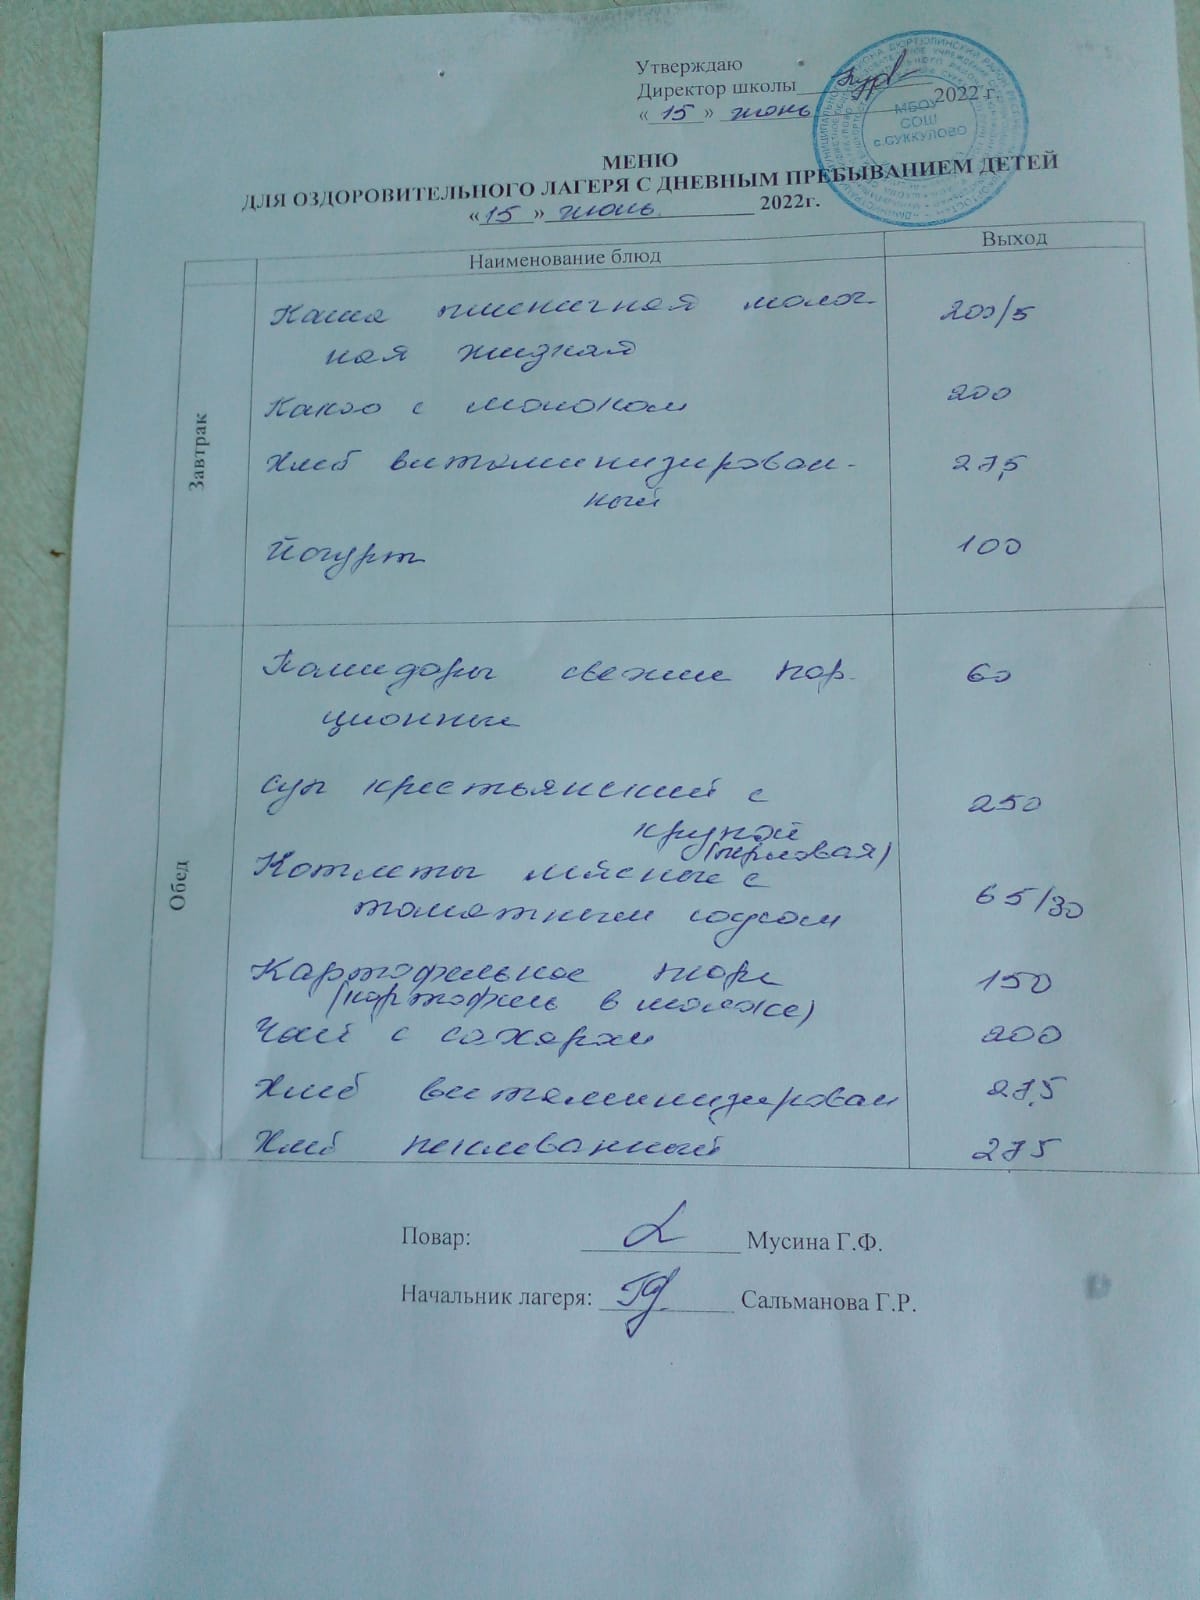 Утверждаю
Директор школы
« 15 » июнь 2022 г.
МБОУ
СОШ
с.СУККУЛОВО
МЕНЮ
ДЛЯ ОЗДОРОВИТЕЛЬНОГО ЛАГЕРЯ С ДНЕВНЫМ ПРЕБЫВАНИЕМ ДЕТЕЙ
« 15 » июнь 2022г.
Наименование блюд Выход
Завтрак
Каша пшеничная молоч- 200/5
ная жидкая
Какао с молоком 200
Хлеб витаминизирован- 27,5
ный
Йогурт 100
Обед
Помидоры свежие пор- 60
ционные
Суп крестьянский с 250
крупой
(перловая)
Котлеты мясные с 65/30
томатным соусом
Картофельное пюре 150
(картофель в молоке)
Чай с сахаром 200
Хлеб витаминизирован 27,5
Хлеб пеклеванный 27,5
Повар: Мусина Г.Ф.
Начальник лагеря: Сальманова Г.Р.